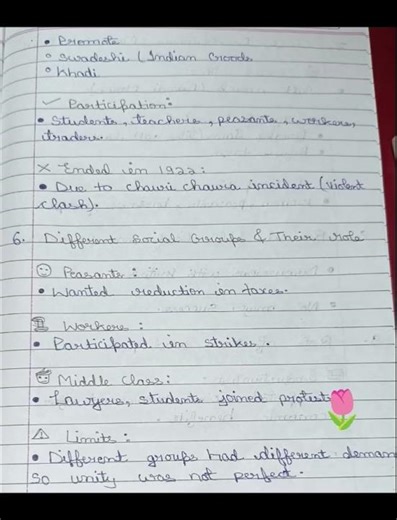 • Promote
◦ Swadeshi (Indian Goods
◦ Khadi
✓ Participation:
• Students, teachers, peasants, workers,
traders.
✗ Ended in 1922:
• Due to Chauri Chaura incident (violent
clash).
6. Different Social Groups & Their role
☺ Peasants:
• Wanted reduction in taxes.
Workers:
• Participated in strikes.
Middle Class:
• Lawyers, students joined protest
⚠ Limits:
• Different groups had different deman
So unity was not perfect.